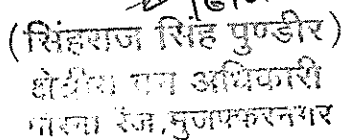 (सिंहराज सिंह पुण्डीर)
क्षेत्रीय वन अधिकारी
रेंज,मुजफ्फरनगर